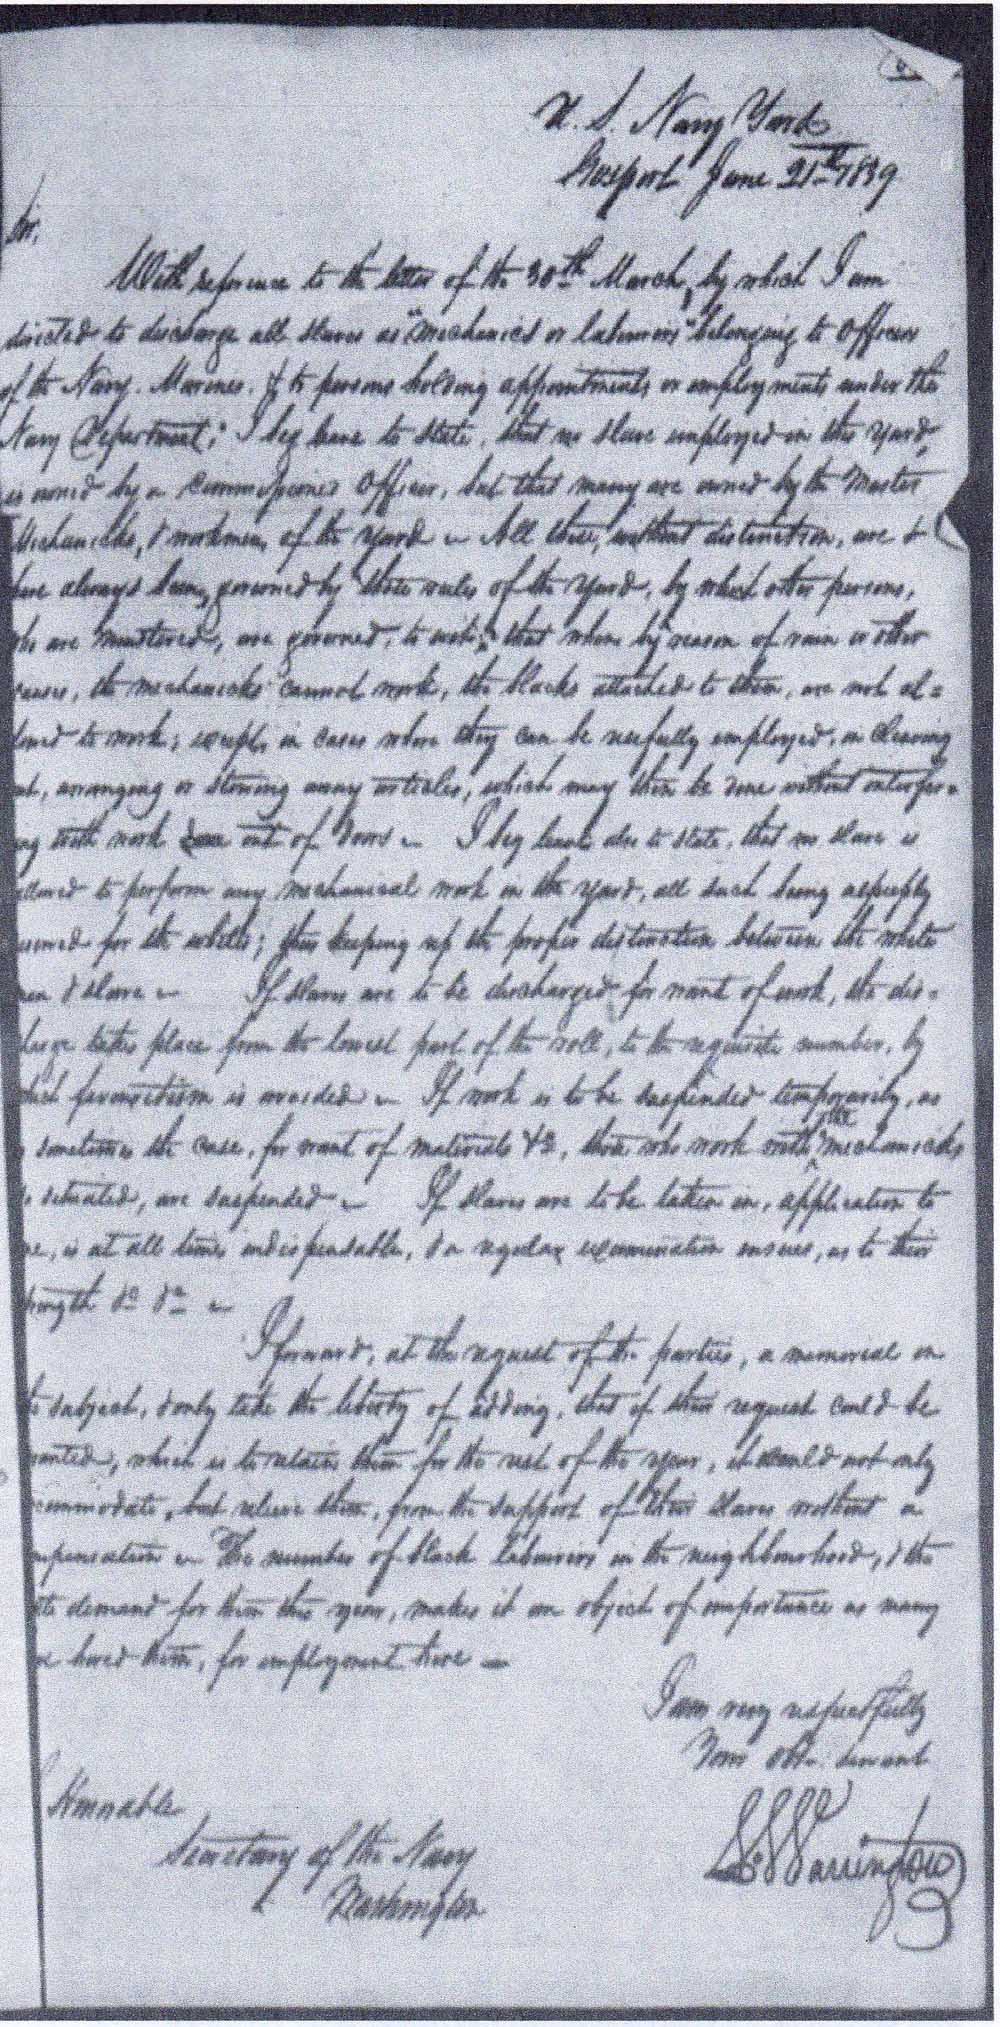 U. S. Navy Yard
Gosport June 21th 1839
Sir,
With reference to the letter of the 30th March, by which I am
directed to discharge all slaves as "mechanics or labourers" belonging to Officers
of the Navy. Marines. & to persons holding appointments or employments under the
Navy Department;" I beg leave to state, that no slave employed in this yard,
is owned by a Commissioned Officer, but that many are owned by the Master
Mechanicks, & workmen of the yard – All these, without distinction, are &
have always been, governed by those rules of the yard, by which other persons,
who are mustered, are governed, to wit; that when by reason of rain or other
causes, the mechanicks cannot work, the blacks attached to them, are not al=
lowed to work; except, in cases where they can be usefully employed, in cleaning
out, arranging or stowing away articles, which may then be done without interfer=
ing with work out of doors – I beg leave also to state, that no slave is
allowed to perform any mechanical work in the yard, all such being
reserved for the whites; thus keeping up the proper distinction between the white
men & slave – If slaves are to be discharged for want of work, the dis=
charge takes place from the lowest part of the roll, to the requisite number, by
which favouritism is avoided – If work is to be suspended temporarily, as
is sometimes the case, for want of materials &c, those who work with the mechanicks
so situated, are suspended – If slaves are to be taken in, application to
me, is at all times indispensable, & a regular examination ensues, as to their
strength &c &c –
I forward, at the request of the parties, a memorial on
the subject, & only take the liberty of adding, that if their request could be
granted, which is to retain them for the rest of the year, it would not only
accommodate, but relieve them, from the support of their slaves without a
compensation – The number of black labourers in the neighbourhood, & the
demand for them this year, makes it an object of importance as many
hired them, for employment here –
I am very respectfully
Your obt. servant
L. Warrington
Honorable
Secretary of the Navy
Washington